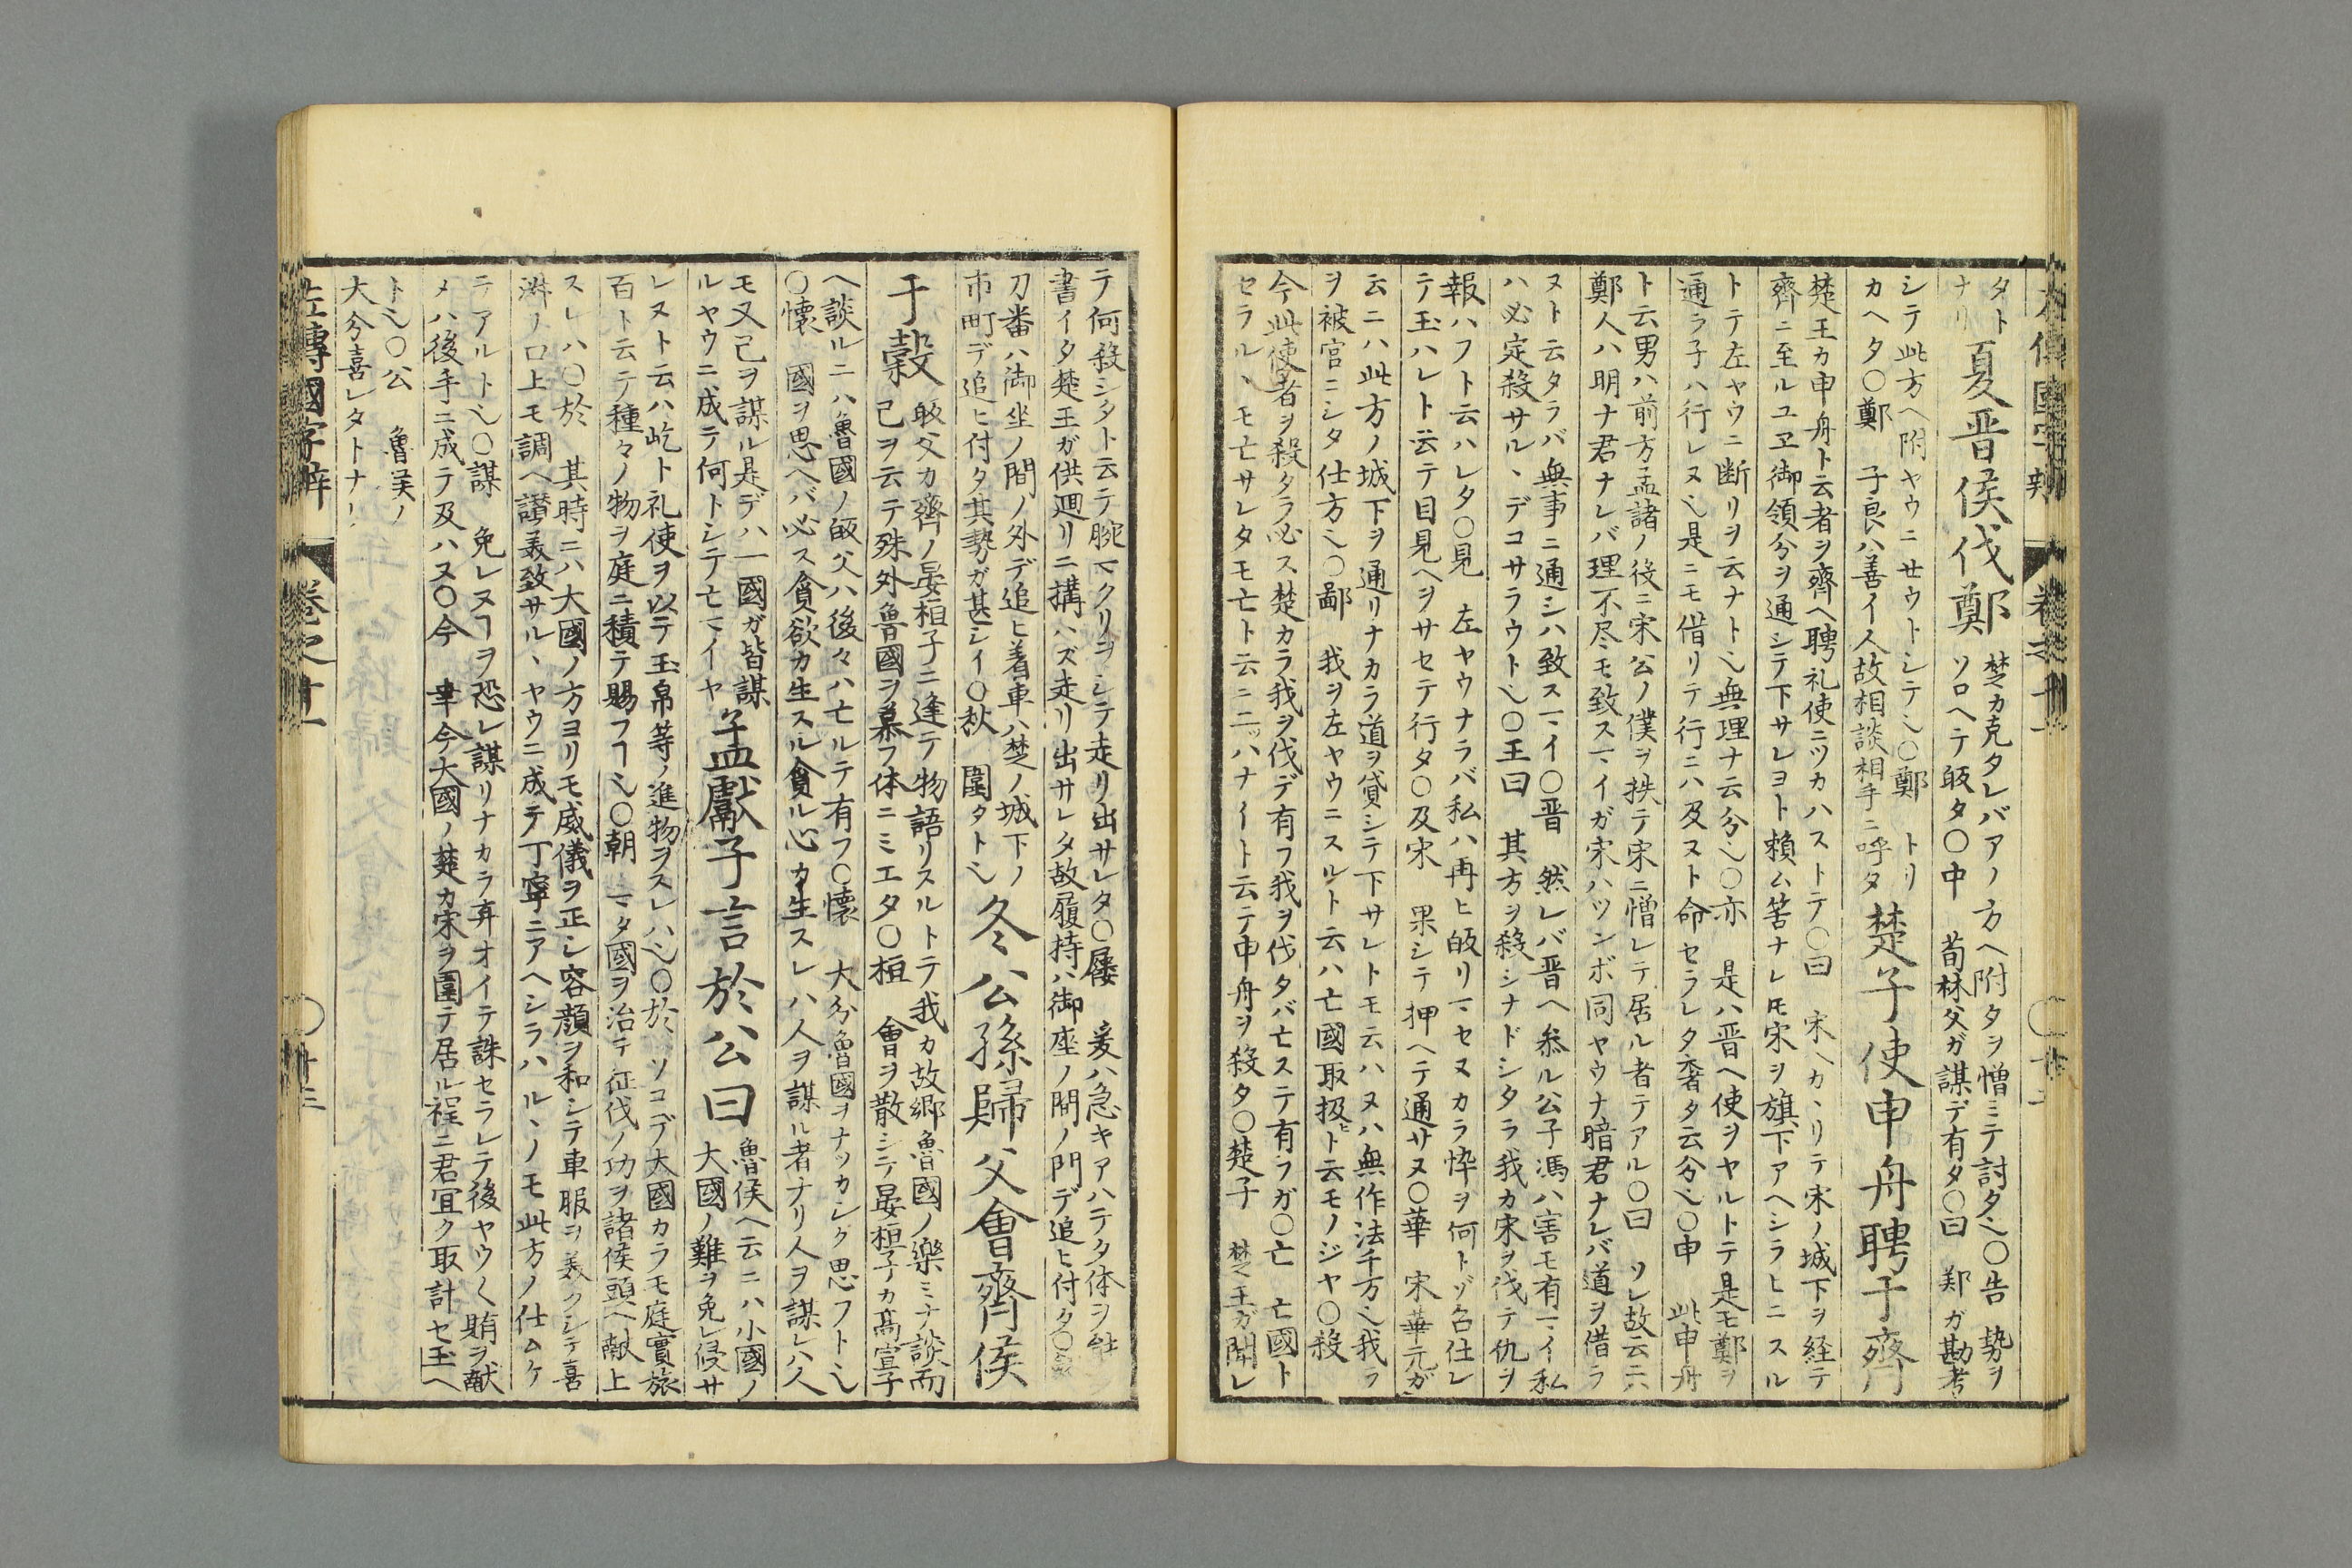 左傳國字辨 卷之十一 〇廿二
タト
ナリ
夏晋侯伐鄭
楚カ克タレバアノ方ヘ附タヲ憎ミテ討タ也〇告 勢ヲ
ソロヘテ皈タ〇中 荀林父ガ謀デ有タ〇曰 郑ガ勘考
シテ此方ヘ附ヤウニせウトシテ也〇鄭 トリ
カヘタ〇鄭 子良ハ善イ人故相談相手ニ呼タ
楚子使申舟聘于齊
楚王カ申舟ト云者ヲ齊ヘ聘礼使ニツカハストテ〇曰 宋ヘカヽリテ宋ノ城下ヲ経テ
齊ニ至ルユヱ御領分ヲ通シテ下サレヨト頼ム筈ナレ𪜈宋ヲ旗下アヘシラヒニスル
トテ左ヤウニ断リヲ云ナト也無理ナ云分也〇亦 是ハ晋ヘ使ヲヤルトテ是モ鄭ヲ
通ラ子ハ行レヌ也是ニモ借リテ行ニハ及ヌト命セラレタ奢タ云分也〇申 此申舟
ト云男ハ前方孟諸ノ役ニ宋公ノ僕ヲ抶テ宋ニ憎レテ居ル者テアル〇曰 ソレ故云ニハ
鄭人ハ明ナ君ナレバ理不尽モ致スマイガ宋ハツンボ同ヤウナ暗君ナレバ道ヲ借ラ
ヌト云タラバ無事ニ通シハ致スマイ〇晋 然レバ晋ヘ叅ル公子馮ハ害モ有マイ私
ハ必定殺サルヽデコサラウト也〇王曰 其方ヲ殺シナドシタラ我カ宋ヲ伐テ仇ヲ
報ハフト云ハレタ〇見 左ヤウナラバ私ハ再ヒ皈リマセヌカラ忰ヲ何トゾ召仕レ
テ玉ハレト云テ目見ヘヲサセテ行タ〇及宋 果シテ押ヘテ通サヌ〇華 宋華元ガ
云ニハ此方ノ城下ヲ通リナカラ道ヲ貸シテ下サレトモ云ハヌハ無作法千万也我ラ
ヲ被官ニシタ仕方也〇鄙 我ヲ左ヤウニスルト云ハ亡國取扱ト云モノジヤ〇殺
今此使者ヲ殺タラ必ス楚カラ我ヲ伐デ有フ我ヲ伐タバ亡ステ有フガ〇亡 亡國ト
セラルヽモ亡サレタモ亡ト云ニ二ツハナイト云テ申舟ヲ殺タ〇楚子 楚王ガ聞レ
テ何殺シタト云テ腕マクリヲシテ走リ出サレタ〇屨 爰ハ急キアハテタ体ヲ
書イタ楚王ガ供廻リニ構ハズ走リ出サレタ故履持ハ御座ノ間ノ門デ追ヒ付タ〇
刀番ハ御坐ノ間ノ外デ追ヒ着車ハ楚ノ城下ノ
市町デ追ヒ付タ其勢ガ甚シイ〇秋 圍タト也
冬公孫歸父會齊侯
于榖
皈父カ齊ノ晏桓子ニ逢テ物語リスルトテ我カ故郷魯國ノ樂ミナ談而
己ヲ云テ殊外魯國ヲ慕フ体ニミエタ〇桓 會ヲ散シテ晏桓子カ髙宣子
ヘ談ルニハ魯國ノ皈父ハ後々ハ亡ルテ有フ〇懐 大分魯國ヲナツカシク思フト也
〇懐 國ヲ思ヘバ必ス貪欲カ生スル貪ル心カ生スレハ人ヲ謀ル者ナリ人ヲ謀レハ人
モ又己ヲ謀ル是デハ一國ガ皆謀
ルヤウニ成テ何トシテ亡マイヤ
孟獻子言於公曰
魯侯ヘ云ニハ小國ノ
大國ノ難ヲ免レ侵サ
レヌト云ハ屹ト礼使ヲ以テ玉帛等ノ進物ヲスレハ也〇於 ソコデ大國カラモ庭實旅
百ト云テ種々ノ物ヲ庭ニ積テ賜フヿ也〇朝 マタ國ヲ治テ征伐ノ功ヲ諸侯頭ヘ献上
スレハ〇於 其時ニハ大國ノ方ヨリモ威儀ヲ正シ容顔ヲ和シテ車服ヲ美クシテ喜
ノ口上モ調ヘ讃美致サルヽヤウニ成テ丁寧ニアヘシラハルヽノモ此方ノ仕ムケ
テアルト也〇謀 免レヌヿヲ恐レ謀リナカラ弃オイテ誅セラレテ後ヤウ〱賄ヲ献
メハ後手ニ成テ及ハヌ〇今 幸今大國ノ楚カ宋ヲ圍テ居ル程ニ君宜ク取計セ玉ヘ
ト也〇公 魯矦ノ
大分喜レタトナリ
左傳國字辨 卷之十一 〇廿三